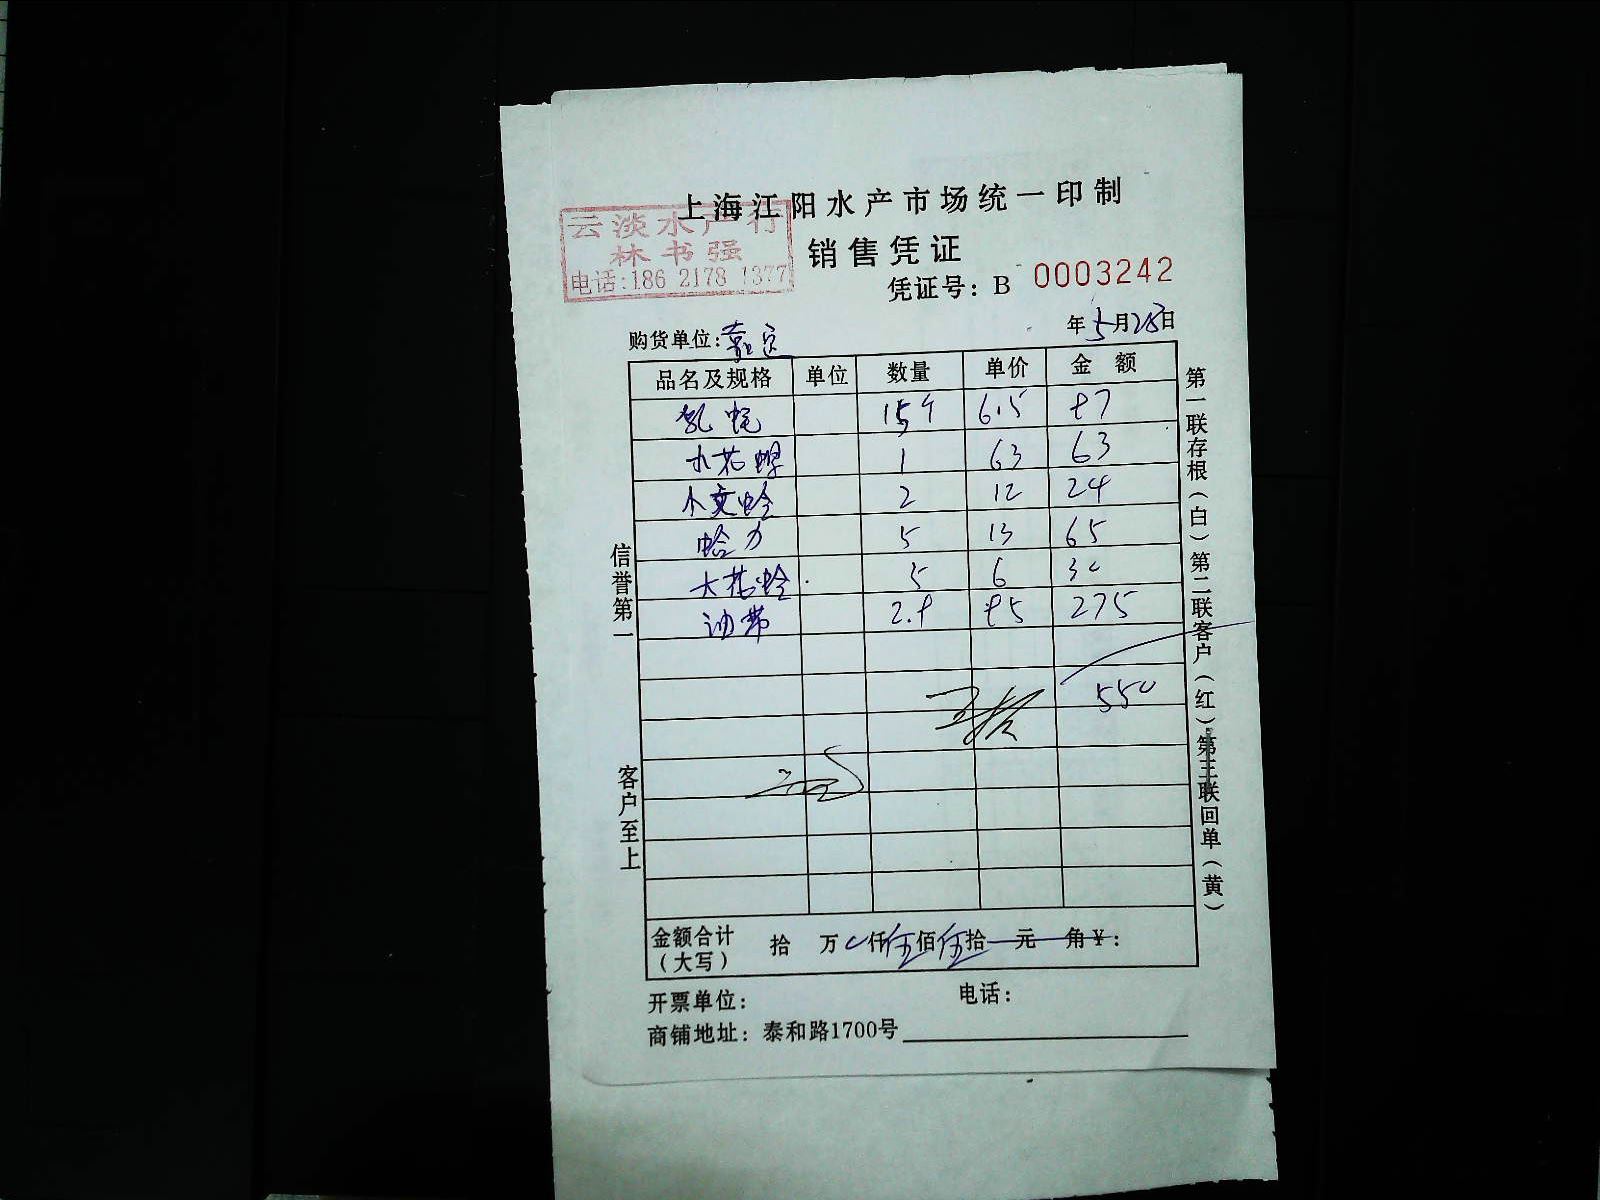 上海江阳水产市场统一印制
云淡水产行
林书强
电话:186 2178 1377
销售凭证
凭证号: B 0003242
购货单位: 年5月28日
品名及规格 单位 数量 单价 金 额
15个 6.5 97
1 63 63
小文蛤 2 12 24
蛤力 5 13 65
大花蛤 5 6 30
275
550
信誉第一
客户至上
第一联存根(白)第二联客户(红)第三联回单(黄)
金额合计(大写) 拾 万 0仟伍佰伍拾 元 角¥:
开票单位: 电话:
商铺地址: 泰和路1700号